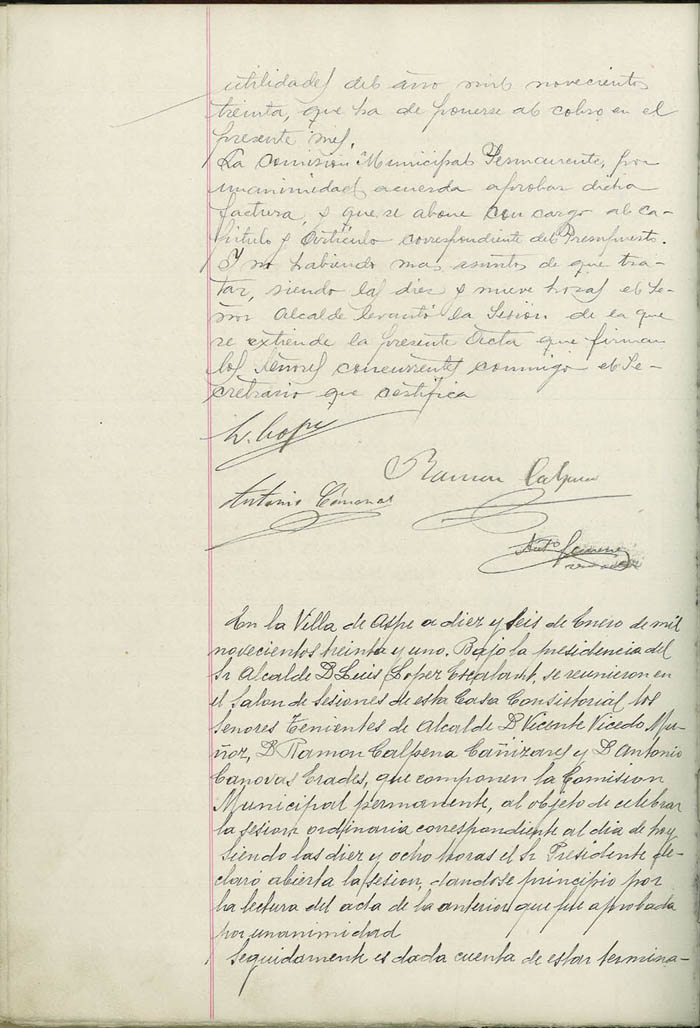 utilidades del año mil novecientos
treinta, que ha de ponerse al cobro en el
presente mes.
La Comisión Municipal Permanente, por
unanimidad acuerda aprobar dicha
factura, y que se abone con cargo al Ca-
pítulo y Artículo correspondiente del Presupuesto.
Y no habiendo mas asuntos de que tra-
tar, siendo las diez y nueve horas el Se-
ñor Alcalde levantó la Sesión de la que
se extiende la presente Acta que firman
los Señores concurrentes conmigo el Se-
cretario que certifica
L. Lopez
Ramon Calpena
Antonio Cánovas
Anto
En la Villa de Aspe a diez y seis de Enero de mil
novecientos treinta y uno. Bajo la presidencia del
Sr Alcalde D Luis Lopez Escalant, se reunieron en
el Salon de sesiones de esta Casa Consistorial los
Senores Tenientes de Alcalde D Vicente Vicedo Mu-
ñoz, D Ramon Calpena Cañizares y D Antonio
Canovas Erades, que componen la Comision
Municipal permanente, al objeto de celebrar
la sesion ordinaria correspondiente al dia de hoy
Siendo las diez y ocho horas el Sr Presidente de-
claró abierta la sesion, dandose principio por
la lectura del acta de la anterior que fue aprobada
por unanimidad
Seguidamente es dada cuenta de estar termina-